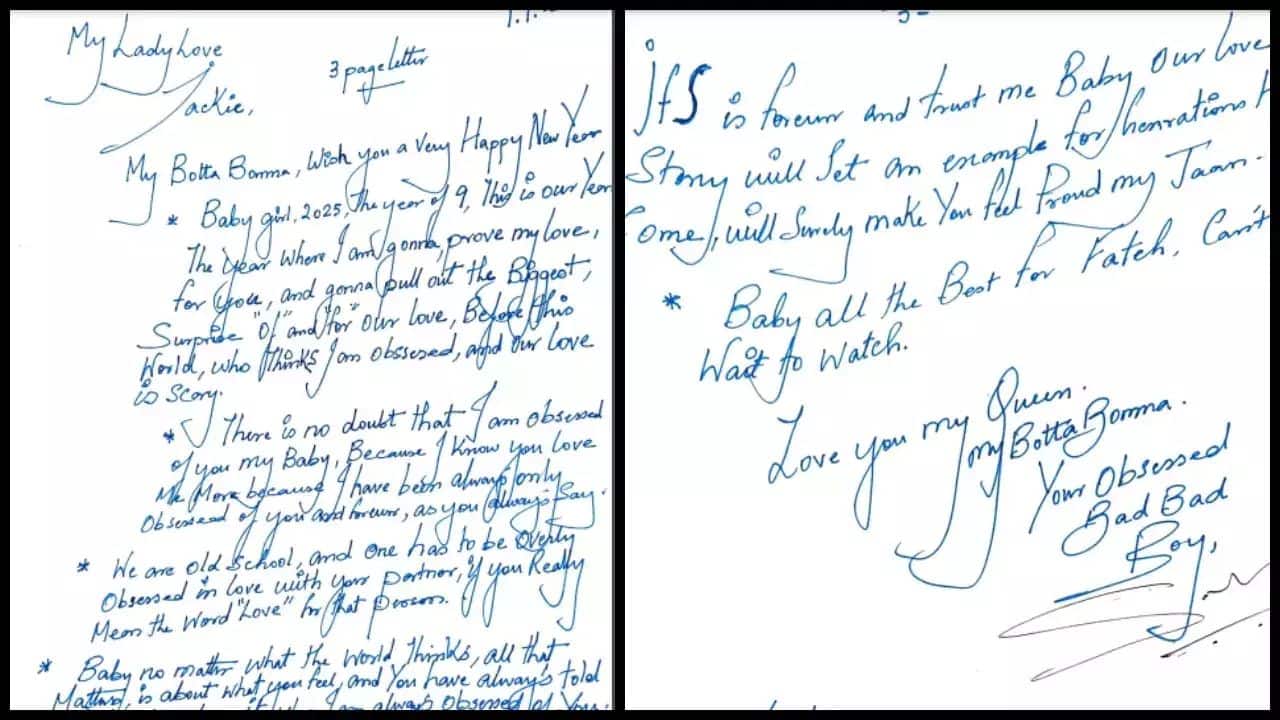 1.1.
My Lady Love
3 page letter
Jackie,
My Botta Bomma, Wish you a Very Happy New Year
* Baby girl, 2025, The year of 9, This is our Year
The year where I am gonna, prove my love,
for you, and gonna pull out the Biggest,
Surprise "Of" and "for" our love, Before this
World, who thinks I am obssesed, and our love
is Scary.
* There is no doubt that I am obsesed
of you my Baby, Because I know you love
Me More because I have been always only
Obsessed of you and forever, as you always Say.
* We are old School, and one has to be overly
Obsessed in love with your partner, if you Really
Mean the Word "Love" for that person.
* Baby no matter what the World Thinks, all that
Matters, is about what you feel, and You have always told
I am always obsessed of You,
3-
It's is forever and trust me Baby Our love
Story will Set an example for henrations
ome, will Surely make You feel Proud my Jaan.
* Baby all the Best for Fateh, Can't
Wait to Watch.
Love you my Queen.
my Botta Bomma.
Your Obsessed
Bad Bad
Boy,